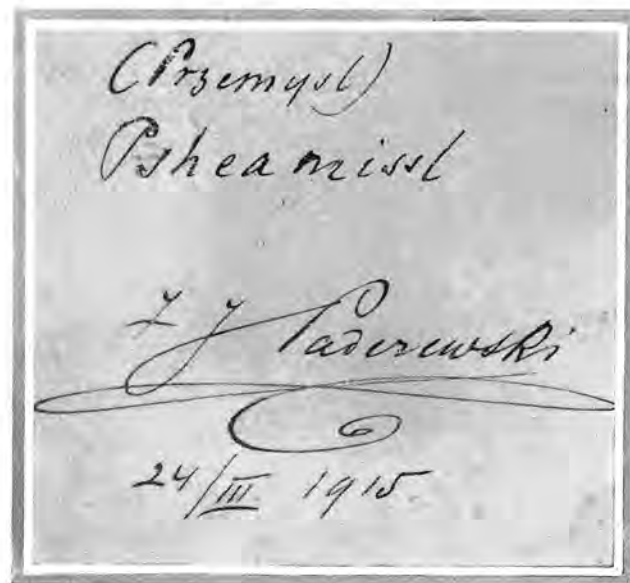 (Przemysl)
Psheamissl
I J Paderewski
24/III 1915.